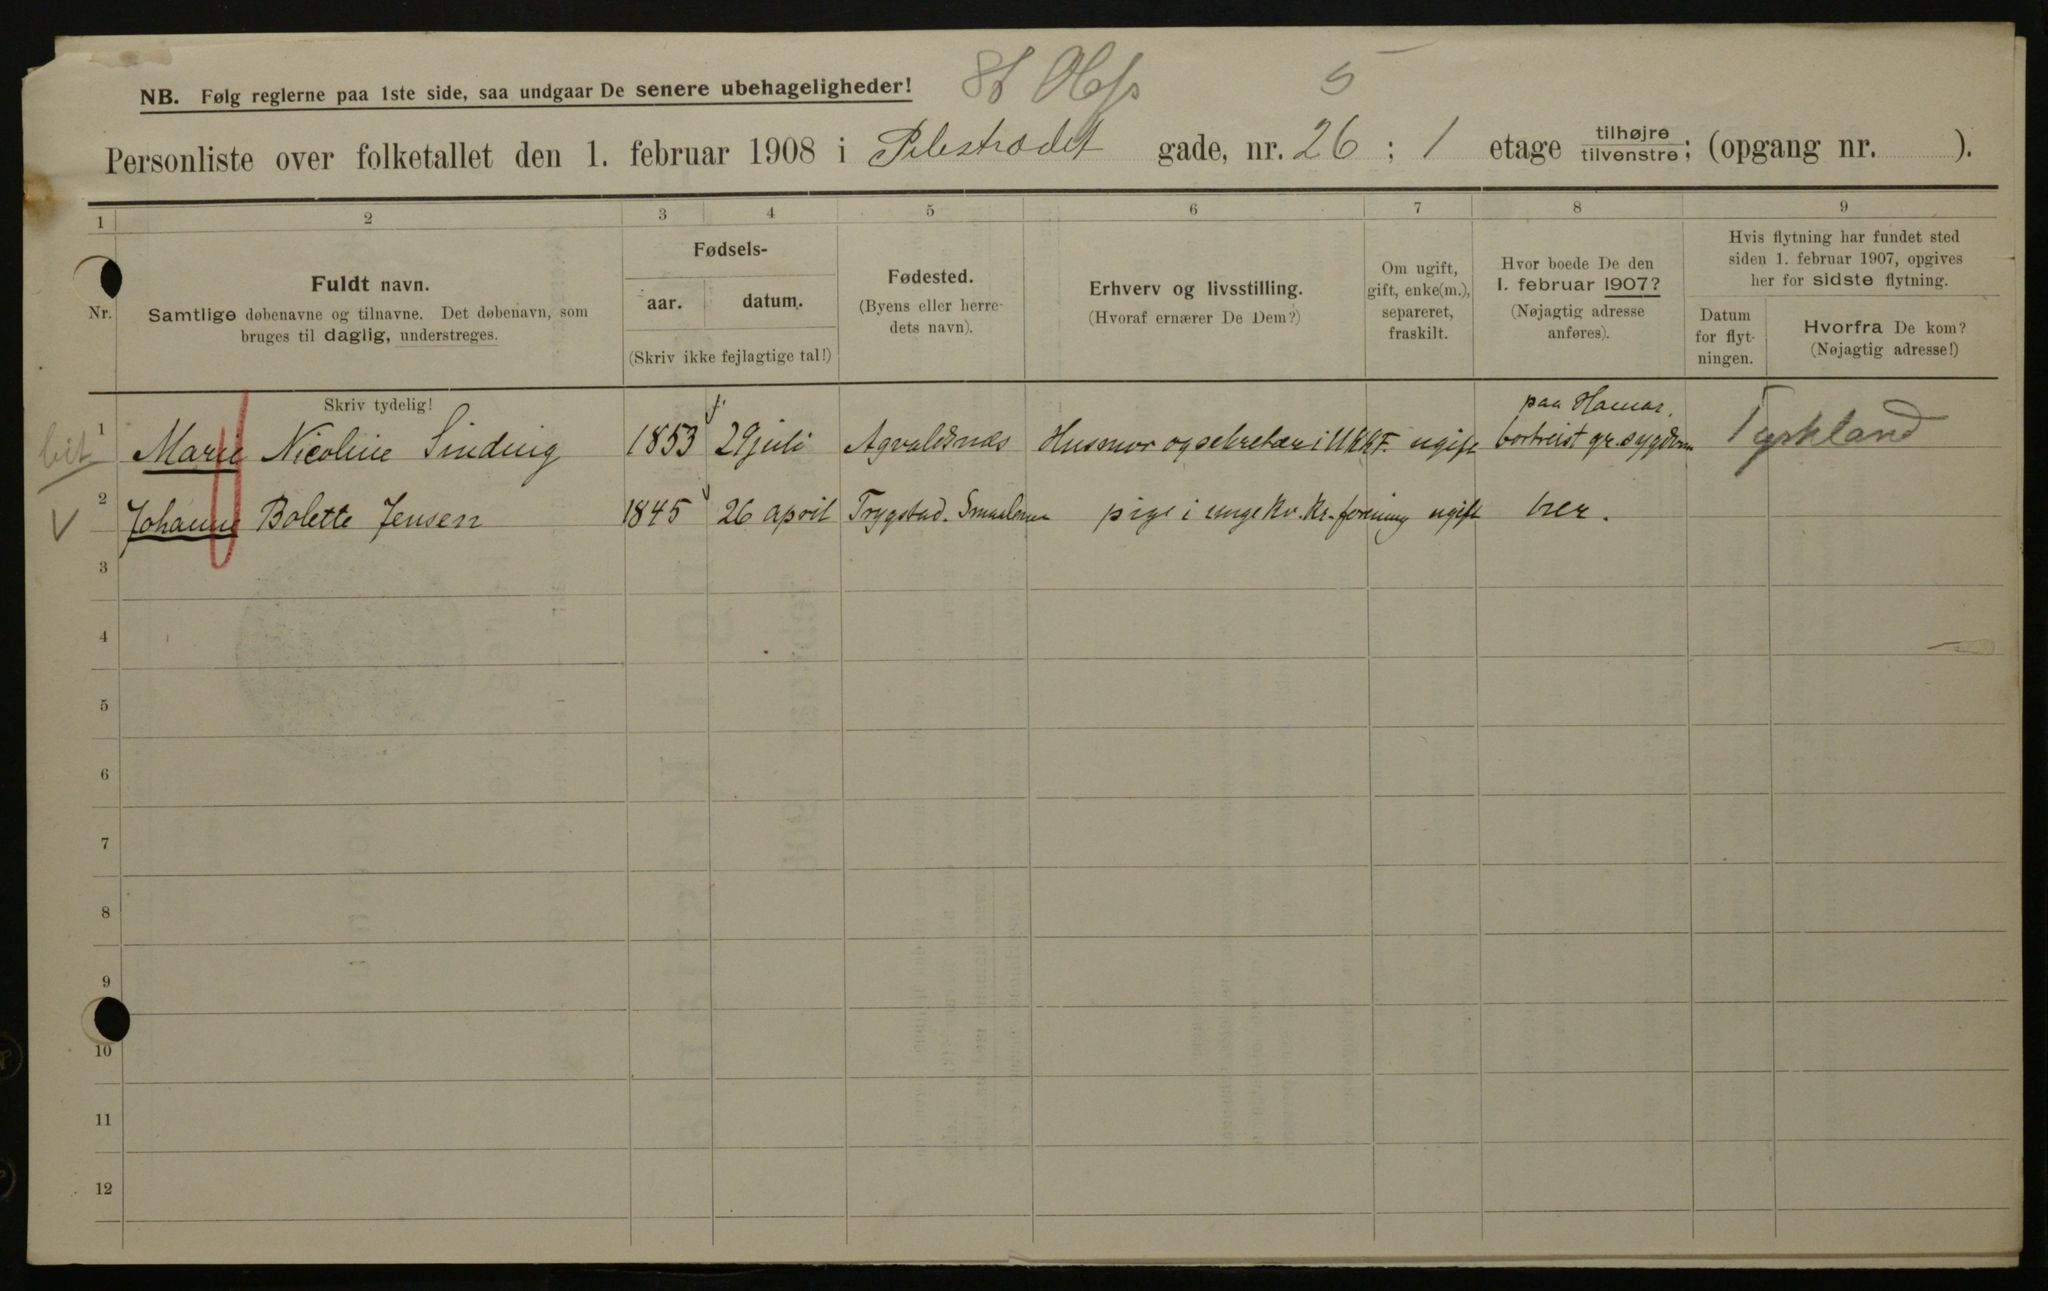 St Olafs 5
NB. Følg reglerne paa 1ste side, saa undgaar De senere ubehageligheder!
Personliste over folketallet den 1. februar 1908 i Pilestrædet gade, nr. 26 ; 1 etage tilhøjre tilvenstre; (opgang nr. ).
1 2 3 4 5 6 7 8 9
Nr.
Fuldt navn.
Samtlige døbenavne og tilnavne. Det døbenavn, som
bruges til daglig, understreges.
Skriv tydelig!
Fødsels-
aar. datum.
(Skriv ikke fejlagtige tal!)
Fødested.
(Byens eller herre-
dets navn).
Erhverv og livsstilling.
(Hvoraf ernærer De Dem?)
Om ugift,
gift, enke(m.),
separeret,
fraskilt.
Hvor boede De den
1. februar 1907?
(Nøjagtig adresse
anføres).
Hvis flytning har fundet sted
siden 1. februar 1907, opgives
her for sidste flytning.
Datum
for flyt-
ningen.
Hvorfra De kom?
(Nøjagtig adresse!)
paa Hamar.
1 Marie Nicoline Sinding 1853 29 juli Agvaldsnæs Husmor og sekretær i UKKF. ugift bortreist gr. sygdom Tyskland
2 Johanne Bolette Jensen 1845 26 april Trygstad. Smaalenene pige i unge kv. kr. forening ugift her.
3
4
5
6
7
8
9
10
11
12